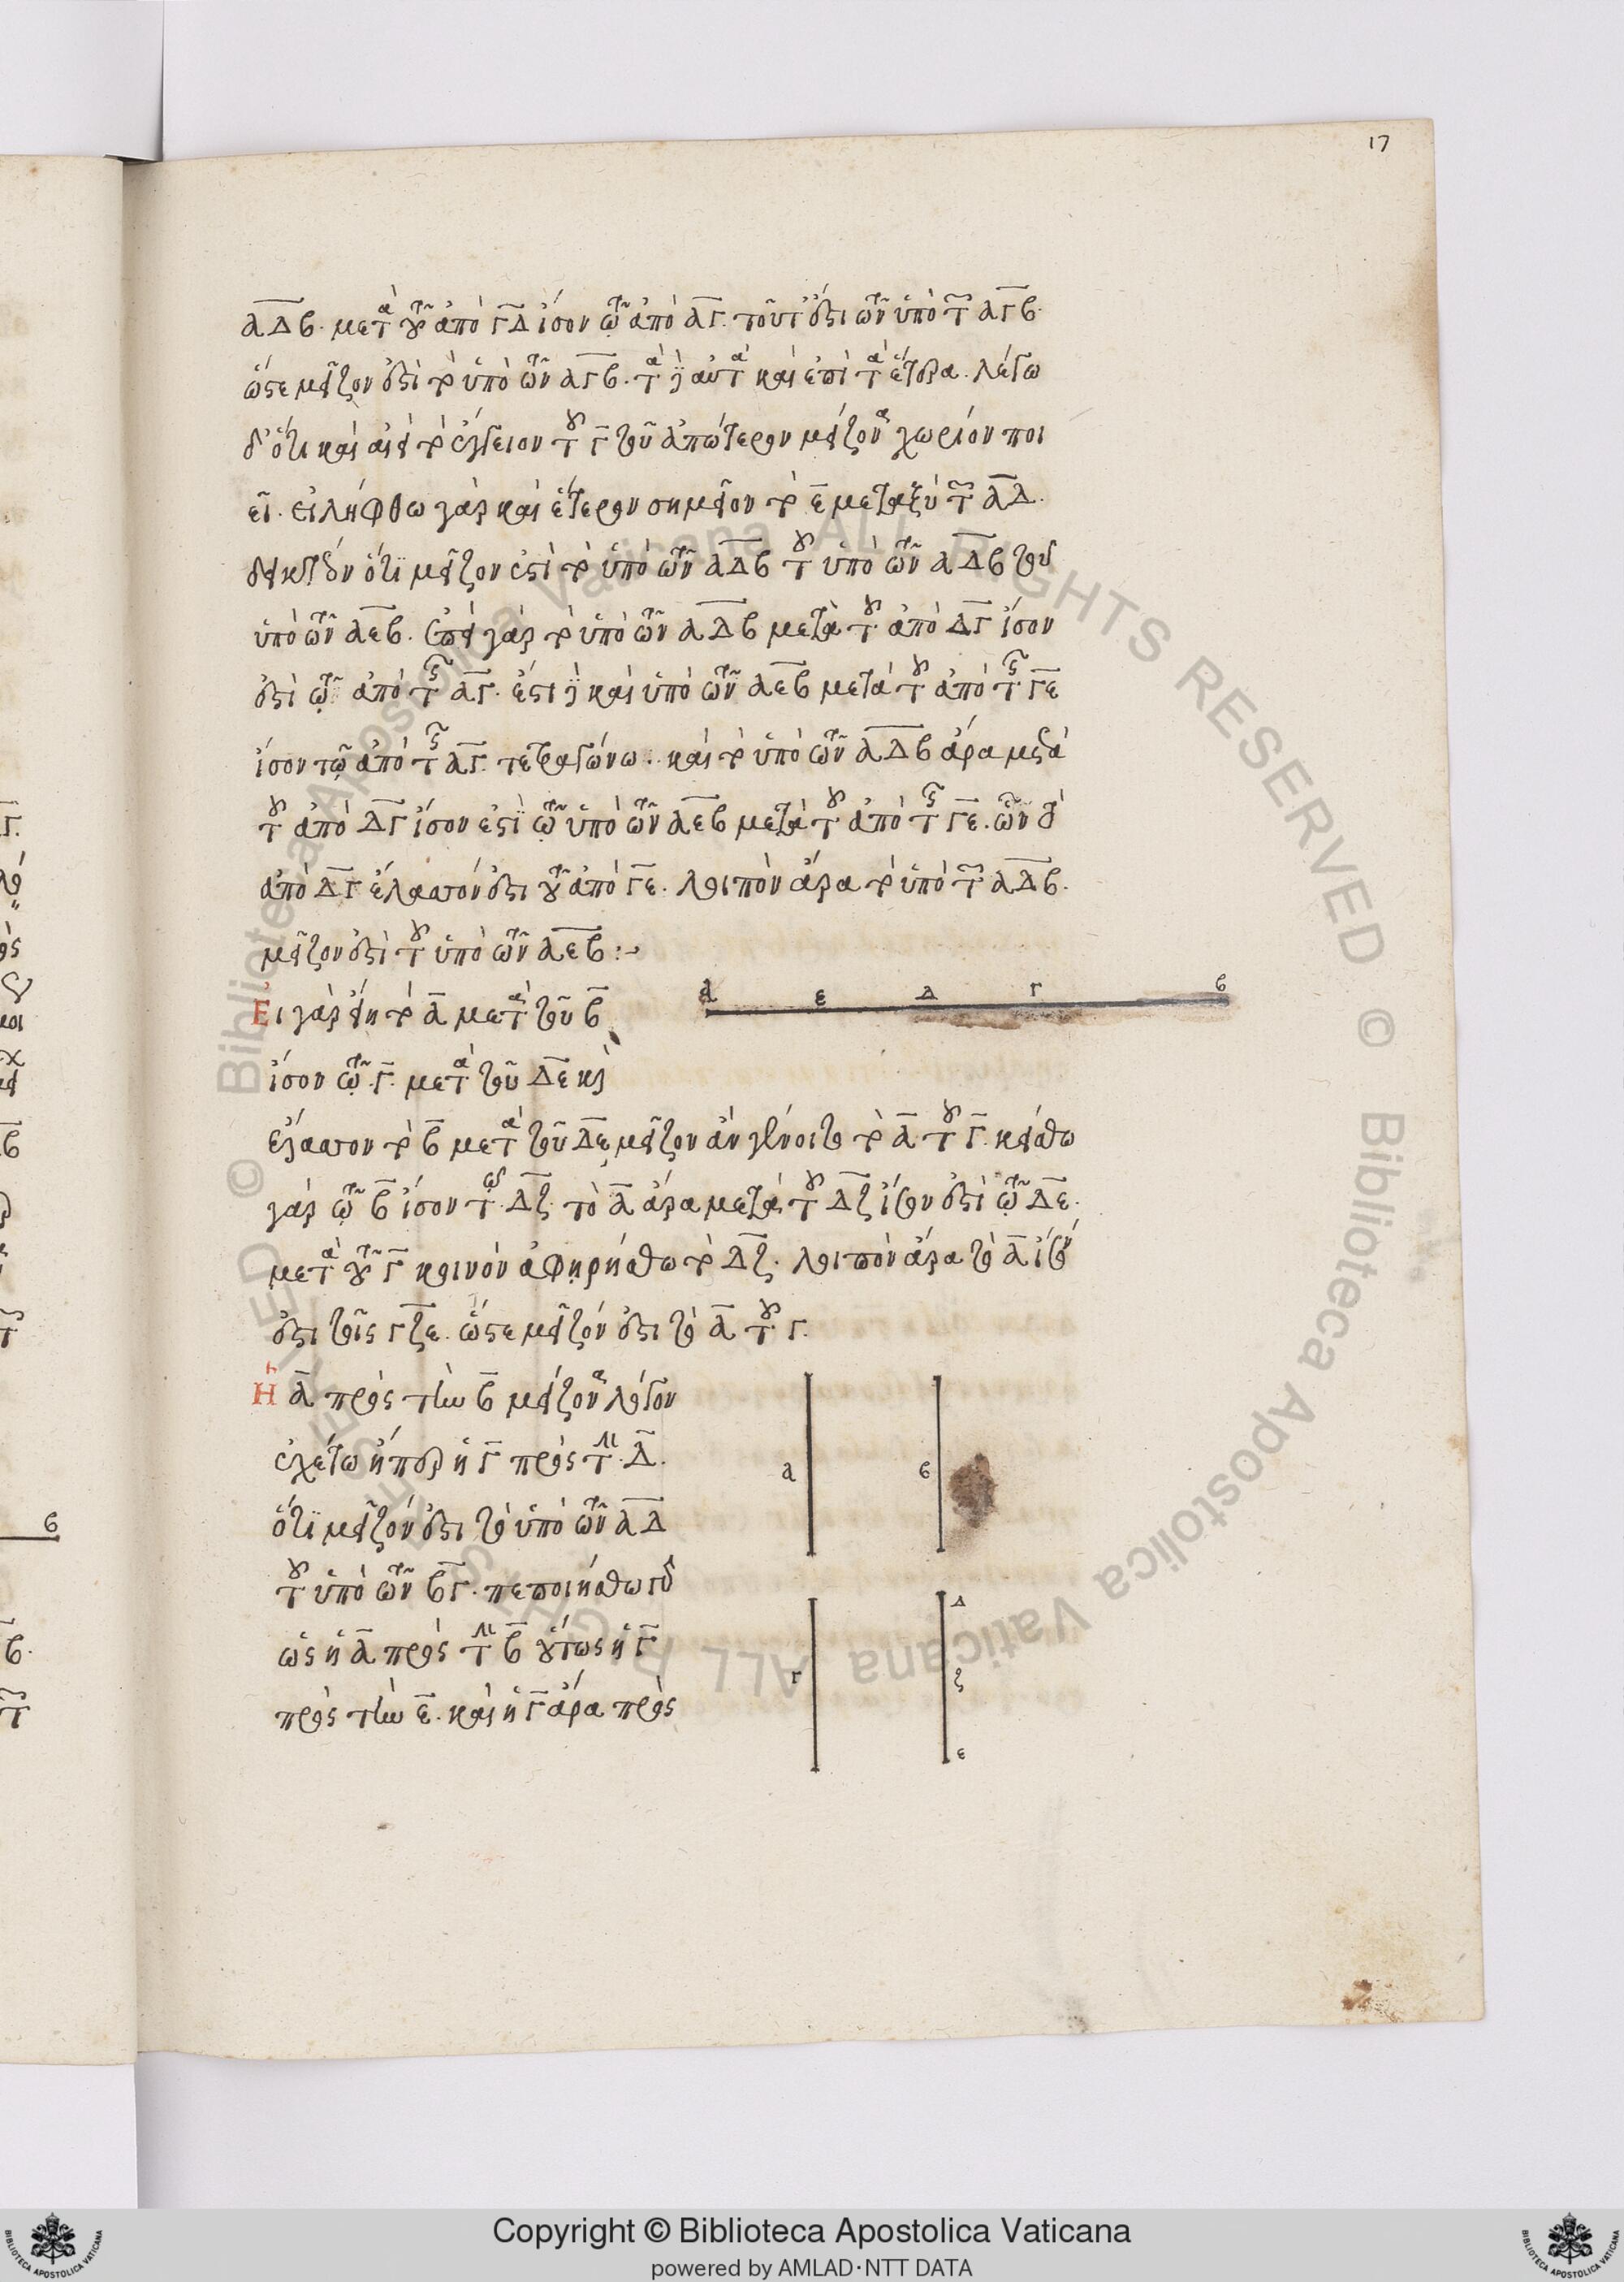 17
ΑΔΒ. μετὰ τοῦ ἀπὸ ΓΔ ἴσον τῷ ἀπὸ ΑΓ. τουτέστι τῶν ὑπὸ τῶν ΑΓΒ.
ὥστε μεῖζον ἐστὶ τὸ ὑπὸ τῶν ΑΓΒ. τὰ δὲ αὐτὰ καὶ ἐπὶ τὰ ἕτερα. λέγω
δ' ὅτι καὶ αἰεὶ τὸ ἔγγειον τοῦ Γ τοῦ ἀπώτερον μεῖζον χωρίον ποι
εῖ. εἰλήφθω γὰρ καὶ ἕτερον σημεῖον τὸ Ε μεταξὺ τῶν ΑΔ.
δεικτέον ὅτι μεῖζον ἐστὶ τὸ ὑπὸ τῶν ΑΔΒ τοῦ ὑπὸ τῶν ΑΔΒ τοῦ
ὑπὸ τῶν ΑΕΒ. ἐπεὶ γὰρ τὸ ὑπὸ τῶν ΑΔΒ μετὰ τοῦ ἀπὸ ΔΓ ἴσον
ἐστὶ τῷ ἀπὸ τῆς ΑΓ. ἔστι δὲ καὶ ὑπὸ τῶν ΑΕΒ μετὰ τοῦ ἀπὸ τῆς ΓΕ
ἴσον τῷ ἀπὸ τῆς ΑΓ. τετραγώνω. καὶ τὸ ὑπὸ τῶν ΑΔΒ ἄρα μετὰ
τοῦ ἀπὸ ΔΓ ἴσον ἐστὶ τῷ ὑπὸ τῶν ΑΕΒ μετὰ τοῦ ἀπὸ τῆς ΓΕ. ὧν τὸ
ἀπὸ ΔΓ ἔλαττόν ἐστι τοῦ ἀπὸ ΓΕ. λοιπὸν ἄρα τὸ ὑπὸ τῶν ΑΔΒ.
μεῖζον ἐστὶ τοῦ ὑπὸ τῶν ΑΕΒ :~
Α Ε Δ Γ Β
Εἰ γὰρ εἴη τὸ Α μετὰ τοῦ Β
ἴσον τῷ Γ. μετὰ τοῦ ΔΕ καὶ
ἔλαττον τὸ Β μετὰ τοῦ ΔΕ μεῖζον ἂν γένοιτο τὸ Α τοῦ Γ. κείσθω
γὰρ τῷ Β ἴσον τῷ ΔΖ. τὸ Α ἄρα μετὰ τοῦ ΔΖ ἴσον ἐστὶ τῷ ΔΕ.
μετὰ τοῦ Γ κοινὸν ἀφηρήσθω τὸ ΔΖ. λοιπὸν ἄρα τὸ Α ἴσον
ἐστι τοῖς ΓΖΕ. ὥστε μεῖζόν ἐστι τὸ Α τοῦ Γ.
Ἡ Α πρὸς τὴν Β μείζονα λόγον
ἐχέτω ἤπερ ἡ Γ πρὸς τὴν Δ.
ὅτι μεῖζόν ἐστι τὸ ὑπὸ τῶν ΑΔ
τοῦ ὑπὸ τῶν ΒΓ. πεποιήσθω γὰρ
ὡς ἡ Α πρὸς τὴν Β οὕτως ἡ Γ
πρὸς τὴν Ε. καὶ ἡ Γ ἄρα πρὸς
Α Β
Γ Δ Ζ Ε
Copyright © Biblioteca Apostolica Vaticana
powered by AMLAD·NTT DATA